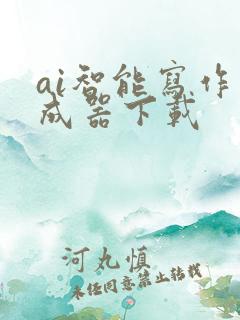 ai智能寫作
成器下載
河丸慎
未經同意禁止轉載